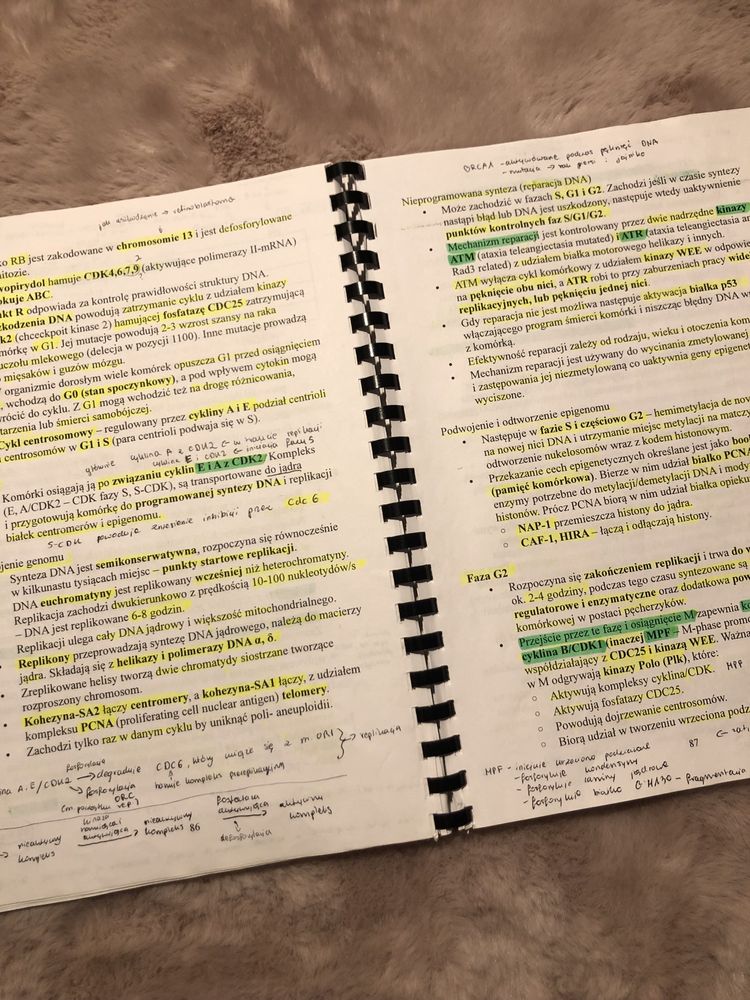 jak uszkodzenie → retinoblastoma
ko RB jest zakodowane w chromosomie 13 i jest defosforylowane
itozie.
wopirydol hamuje CDK4,6,7,9 (aktywujące polimerazy II-mRNA)
okuje ABC.
nkt R odpowiada za kontrolę prawidłowości struktury DNA.
zkodzenia DNA powodują zatrzymanie cyklu z udziałem kinazy
k2 (chceckpoit kinase 2) hamującej fosfatazę CDC25 zatrzymującą
omórkę w G1. Jej mutacje powodują 2-3 wzrost szansy na raka
uczołu mlekowego (delecja w pozycji 1100). Inne mutacje prowadzą
o mięsaków i guzów mózgu.
organizmie dorosłym wiele komórek opuszcza G1 przed osiągnięciem
, wchodzą do G0 (stan spoczynkowy), a pod wpływem cytokin mogą
wrócić do cyklu. Z G1 mogą wchodzić też na drogę różnicowania,
tarzenia lub śmierci samobójczej.
Cykl centrosomowy – regulowany przez cykliny A i E podział centrioli
i centrosomów w G1 i S (para centrioli podwaja się w S).
głównie cyklina A z CDK2 w trakcie replikacji
cyklina E i CDK2 inicjacja fazy S
Komórki osiągają ją po związaniu cyklin E i A z CDK2/ Kompleks
(E, A/CDK2 – CDK fazy S, S-CDK), są transportowane do jądra
i przygotowują komórkę do programowanej syntezy DNA i replikacji
białek centromerów i epigenomu.
S-CDK powoduje zniesienie inhibicji przez Cdc 6
jenie genomu
Synteza DNA jest semikonserwatywna, rozpoczyna się równocześnie
w kilkunastu tysiącach miejsc – punkty startowe replikacji.
DNA euchromatyny jest replikowany wcześniej niż heterochromatyny.
Replikacja zachodzi dwukierunkowo z prędkością 10-100 nukleotydów/s
– DNA jest replikowane 6-8 godzin.
Replikacji ulega cały DNA jądrowy i większość mitochondrialnego.
Replikony przeprowadzają syntezę DNA jądrowego, należą do macierzy
jądra. Składają się z helikazy i polimerazy DNA α, δ.
Zreplikowane helisy tworzą dwie chromatydy siostrzane tworzące
rozproszony chromosom.
Kohezyna-SA2 łączy centromery, a kohezyna-SA1 łączy, z udziałem
kompleksu PCNA (proliferating cell nuclear antigen) telomery.
Zachodzi tylko raz w danym cyklu by uniknąć poli- aneuploidii.
fosforylacja
ina A.E/CDK2 → degraduje CDC6, który wiąże się z m. ORI → replikacja
→ fosforylacja ORC hamuje kompleks prereplikacyjny
(na początku rep)
kinaza hamująca i aktywująca
fosfataza aktywująca
→ nieaktywny kompleks → nieaktywny kompleks → aktywny kompleks
86
defosforylacja
BRCA1 - aktywowane podczas pęknięć DNA
- mutacja → rak piersi i jajnika
Nieprogramowana synteza (reparacja DNA)
Może zachodzić w fazach S, G1 i G2. Zachodzi jeśli w czasie syntezy
nastąpi błąd lub DNA jest uszkodzony, następuje wtedy uaktywnienie
punktów kontrolnych faz S/G1/G2.
Mechanizm reparacji jest kontrolowany przez dwie nadrzędne kinazy
ATM (ataxia teleangiectasia mutated) i ATR (ataxia teleangiectasia an
Rad3 related) z udziałem białka motorowego helikazy i innych.
ATM wyłącza cykl komórkowy z udziałem kinazy WEE w odpowie
na pęknięcie obu nici, a ATR robi to przy zaburzeniach pracy wide
replikacyjnych, lub pęknięciu jednej nici.
Gdy reparacja nie jest możliwa następuje aktywacja białka p53
włączającego program śmierci komórki i niszcząc błędny DNA w
z komórką.
Efektywność reparacji zależy od rodzaju, wieku i otoczenia kom
Mechanizm reparacji jest używany do wycinania zmetylowanej
i zastępowania jej niezmetylowaną co uaktywnia geny epigene
wyciszone.
Podwojenie i odtworzenie epigenomu
Następuje w fazie S i częściowo G2 – hemimetylacja de nov
na nowej nici DNA i utrzymanie miejsc metylacji na matcz
odtworzenie nukelosomów wraz z kodem histonowym.
Przekazanie cech epigenetycznych określane jest jako boo
(pamięć komórkowa). Bierze w nim udział białko PCNA
enzymy potrzebne do metylacji/demetylacji DNA i mody
histonów. Prócz PCNA biorą w nim udział białka opieku
NAP-1 przemieszcza histony do jądra.
CAF-1, HIRA – łączą i odłączają histony.
Faza G2
Rozpoczyna się zakończeniem replikacji i trwa do w
ok. 2-4 godziny, podczas tego czasu syntezowane są
regulatorowe i enzymatyczne oraz dodatkowa pow
komórkowej w postaci pęcherzyków.
Przejście przez tę fazę i osiągnięcie M zapewnia ko
cyklina B/CDK1 (inaczej MPF – M-phase promo
współdziałający z CDC25 i kinazą WEE. Ważną
w M odgrywają kinazy Polo (Plk), które:
Aktywują kompleksy cyklina/CDK. MPF
Aktywują fosfatazy CDC25.
Powodują dojrzewanie centrosomów.
Biorą udział w tworzeniu wrzeciona podz
87
MPF - inicjuje wrzeciono podziałowe
- fosforyluje kondensyny
- fosforyluje laminy jądrowe
- fosforyluje białko GM130 - fragmentacja